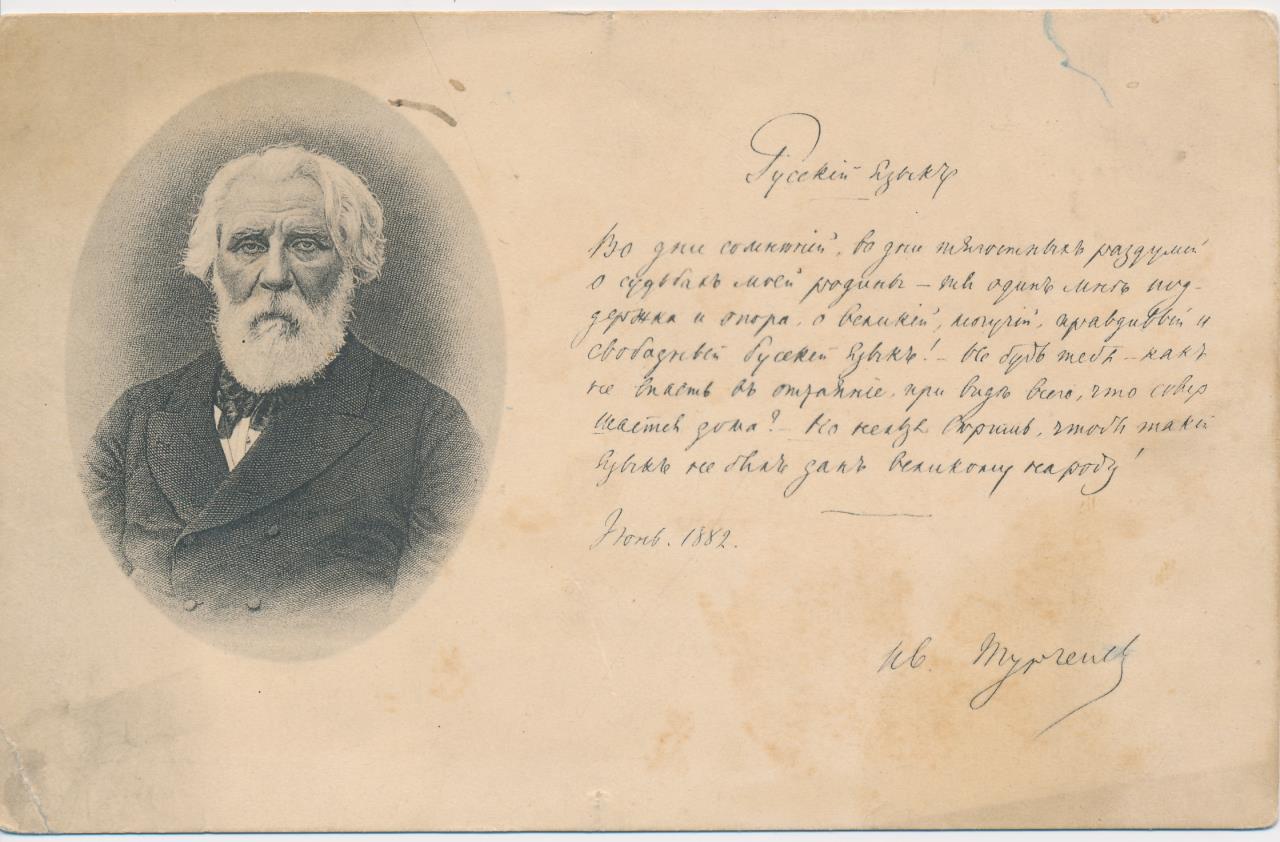 Русскій Языкъ
Во дни сомнѣній, во дни тягостныхъ раздумій
о судьбахъ моей родины – ты одинъ мнѣ под-
держка и опора, о великій, могучій, правдивый и
свободный Русскій Языкъ! – Не будь тебя – какъ
не впасть въ отчаяніе, при видѣ всего, что совер
шается дома? – Но нельзя вѣрить, чтобы такой
Языкъ не былъ данъ великому народу!
Июнь. 1882.
Ив. Тургенев